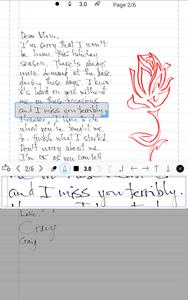 3.0 Page 2/6
Dear Mom,
I'm sorry that I won't
be home this holiday
season. There's always
more demand at the base
during these days. I know
it's hard on you without
me on these occasions
and I miss you terribly.
However, I have to do
what you've taught me
to finish what I started
Don't worry about me.
I'm ok as you can tell
2/6 3.0
and I miss you terribly.
Love,
Craig
Craig